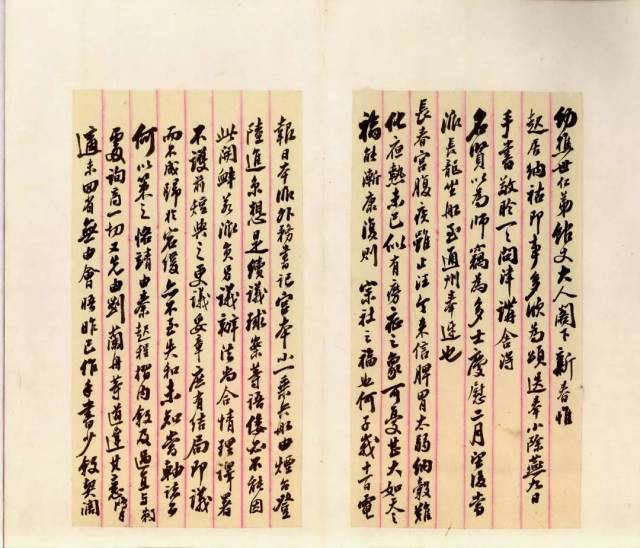 幼樵世仁弟館丈大人閣下新春惟
起居納祜即事多欣為頌送奉小除燕九日
手書敬聆一一問津講舍得
名賢以為師竊為多士慶慰二月望後當
派長龍坐船至通州奉迓也
長春宮腹疾雖止汪令來信脾胃太弱納穀難
化夜熱未已似有旁症之象可憂甚大如天之
福能漸康復則宗社之福也何子峩十一日電
報日本派外務書記宮本小一乘兵船由煙台登
陸進京想是續議球案等語倭必不能因
此開衅若派員另議辦法尚合情理譯署
不護前短與之更議妥章庶有結局即議
而不成歸於宕緩亦不至失和未知當軸諸公
何以策之恪靖由秦起程摺內敘及過直與
面詢商一切又先由劉蘭舟等道達其意
適未四省無由會晤昨已作手書少敘契闊